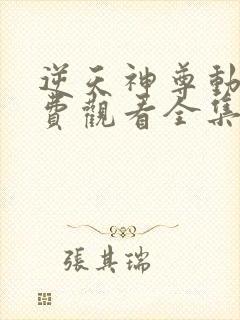 逆天神尊動
費觀看全集
張其瑞